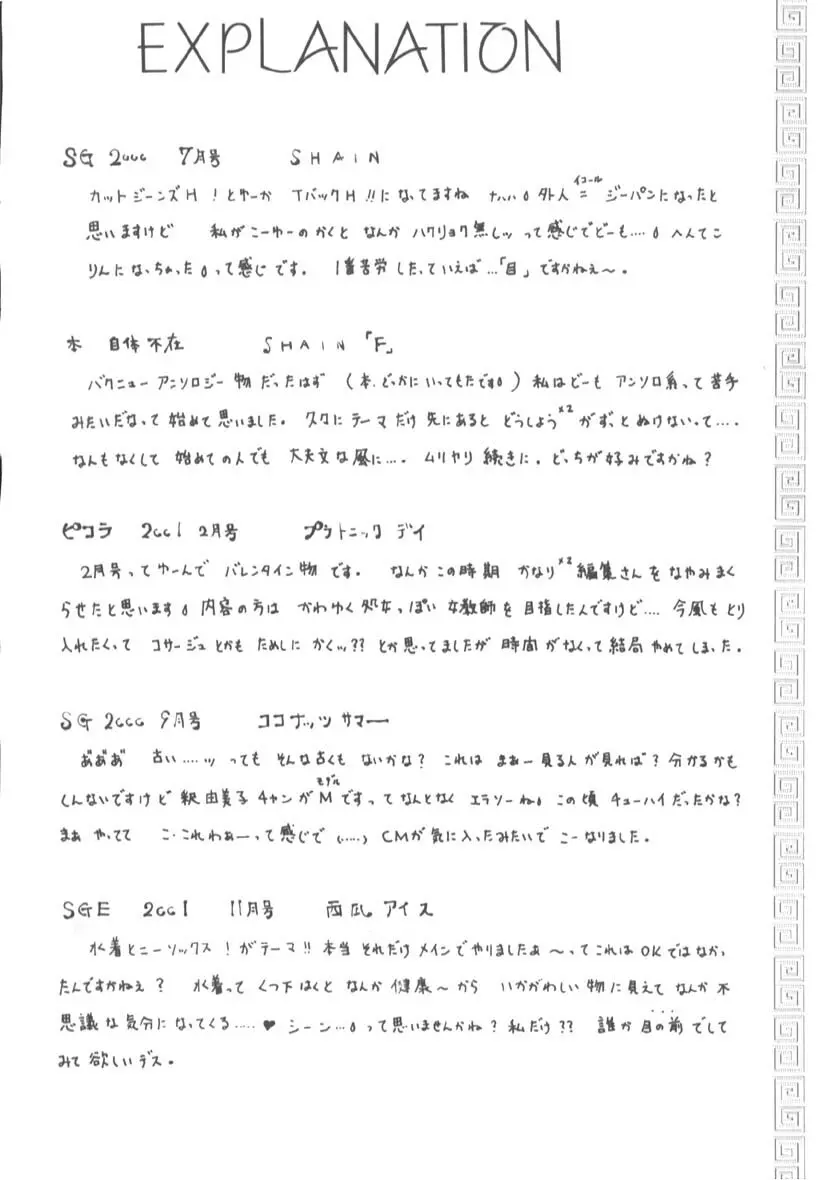 EXPLANATION
SG 2000 7月号 SHAIN
カットジーンズH!とゆーか TバックH!!になってますね ナハハ。外人=ジーパンになったと
イコール
思いますけど 私がこーゆーのかくと なんか ハクリョク無しッ って感じでどーも....。へんてこ
りんになっちゃった。って感じです。 1番苦労したっていえば…「目」ですかねぇ〜。
本 自体不在 SHAIN「F」
バクニューアンソロジー物だったはず (本、どっかにいってもたです。) 私はどーも アンソロ系って苦手
みたいだなって始めて思いました。 テーマだけ先にあると どうしよう×2がずっとぬけないって....
なんもなくして 始めての人でも 大丈夫な風に.... ムリヤリ続きに。どっちが好みですかね?
ピコラ 2001 2月号 プラトニックデイ
2月号ってゆーんで バレンタイン物です。 なんかこの時期 かなり×2編集さんをなやみまく
らせたと思います。内容の方は かわゆく処女っぽい女教師を目指したんですけど.... 今風もとり
入れたくって コサージュとかも ためしに かくッ?? とか思ってましたが 時間がなくって結局やめてしまった。
SG 2000 9月号 ココナッツサマー
あ゛あ゛あ゛ 古い.....ッ っても そんな古くも ないかな? これは まぁー見る人が見れば?分かるかも
しんないですけど 釈由美子チャンがMですってなんとなく エラソーね。この頃 チューハイだったかな?
モデル
まぁ やってて こ・これわぁーって感じで (.....) CMが気に入ったみたいで こーなりました。
SGE 2001 11月号 西瓜アイス
水着とニーソックス!がテーマ!!本当 それだけメインでやりましたぁ〜ってこれは OKではなかっ
たんですかねぇ? 水着って くつ下はくと なんか 健康〜から いかがわしい物に見えて なんか不
思議な気分になってくる.....♥ シーン...。って思いませんかね?私だけ?? 誰か目の前でしで
みて欲しいデス。